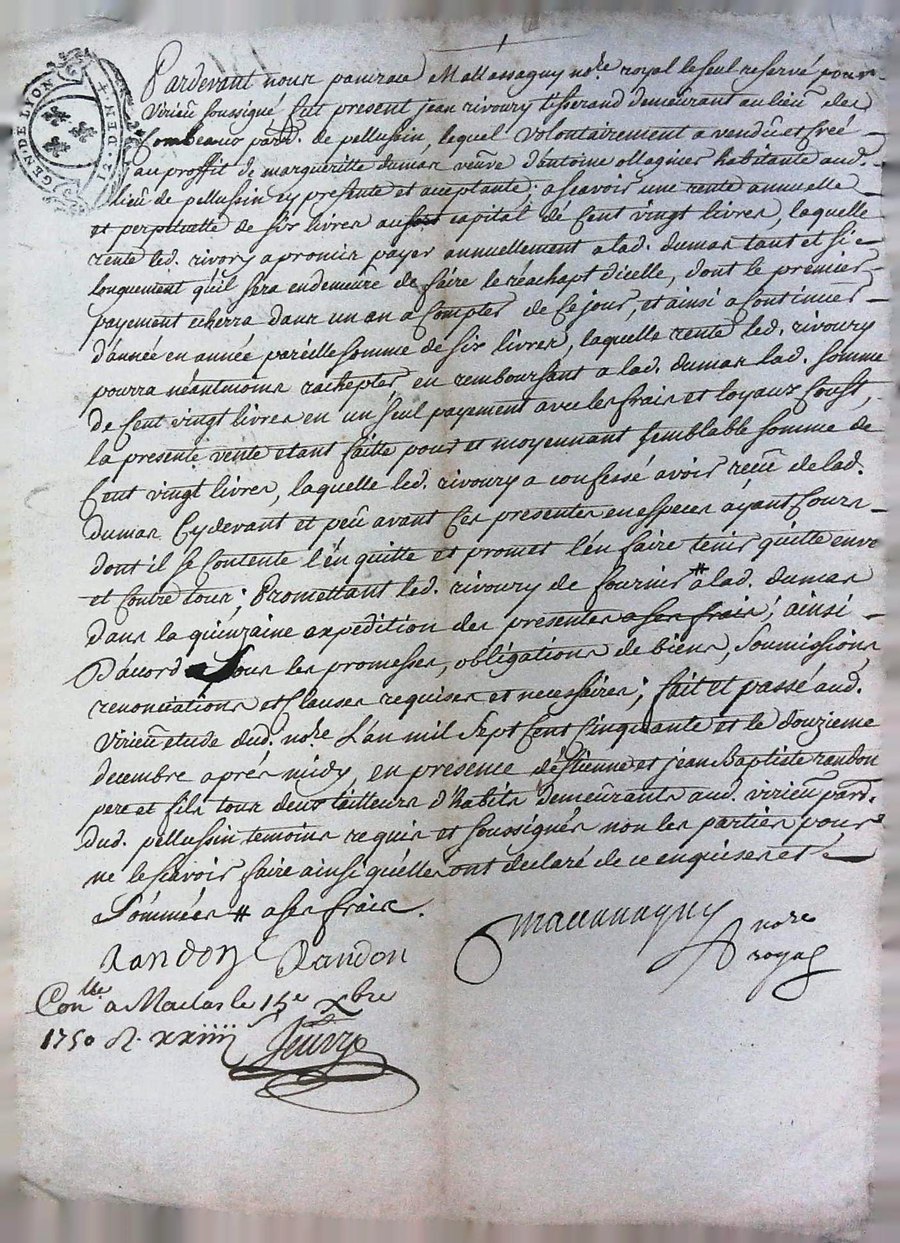 GEN. DE LYON
12. DEN.
Pardevant nous pancrace Mallassagny no.re royal le seul reservé pour
Virieu soussigné, fut present jean rivoury tisserand demeurant au lieu des
Combeaux parr. de pellussin, lequel volontairement a vendû et créé
au proffit de margueritte dumas veuve d'antoine ollagnier habitante aud.
lieu de pellussin cy presente et acceptante; a scavoir une rente annuelle
et perpetuelle de six livres au capital de Cent vingt livres, laquelle
rente led. rivory a promis payer annuellement a lad. dumas tant et si
longuement qu'il sera en demeure de faire le reachapt dicelle, dont le premier
payement echerra dans un an a Compter de Ce jour, et ainsi a Continuer
d'année en année pareille somme de six livres, laquelle rente led. rivoury
pourra néantmoins rachepter en remboursant a lad. dumas lad. somme
de Cent vingt livres en un seul payement avec les frais et loyaux Coust,
la presente vente etant faitte pour et moyennant semblable somme de
Cent vingt livres, laquelle led. rivoury a confessé avoir reçeu de lad.
dumas Cy devant et peu avant Ces presentes en especes ayant Cours
dont il se Contente l'en quitte et promet l'en faire tenir quitte envers
et Contre tous; Promettant led. rivoury de fournir # a lad. dumas
dans la quinzaine expedition des presentes a ses frais; ainsi
D'acord Sous les promesses, obligations de biens, soumissions
renonciations et Clauses requises et necessaires; fait et passé aud.
Virieu etude dud. no.re L'an mil sept Cent Cinquante et le douzieme
decembre aprés midy, en presence d'Estienne et jean Baptiste randon
pere et fils tous deux tailleurs d'habits demeurants aud. virieu parr.
dud. pellussin temoins requis et soussignés non les parties pour
ne le scavoir faire ainsi qu'elles ont declaré de ce enquises et
Sommées # a ses frais.
Randon Randon
Mallassagny no.re
royal
Con.lle a Maclas le 15e Xbre
1750 R. xxiiii s